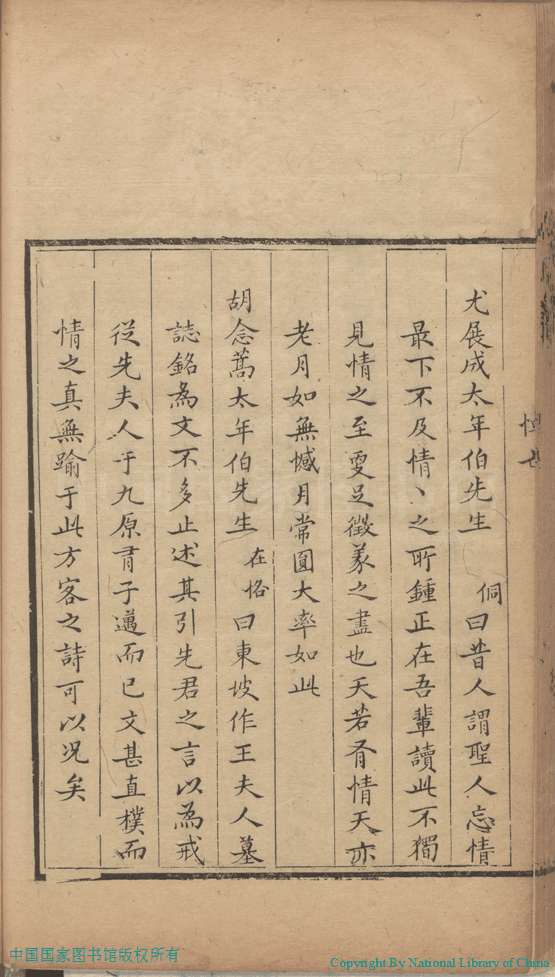 尤展成太年伯先生 侗曰昔人謂聖人忘情
最下不及情〻之所鍾正在吾輩讀此不獨
見情之至更足徵義之盡也天若有情天亦
老月如無憾月常圓大率如此
胡念蒿太年伯先生 在恪曰東坡作王夫人墓
誌銘為文不多止述其引先君之言以為戒
從先夫人于九原有子邁而已文甚直樸而
情之真無踰于此方客之詩可以况矣
中国国家图书馆版权所有
Copyright By National Library of China